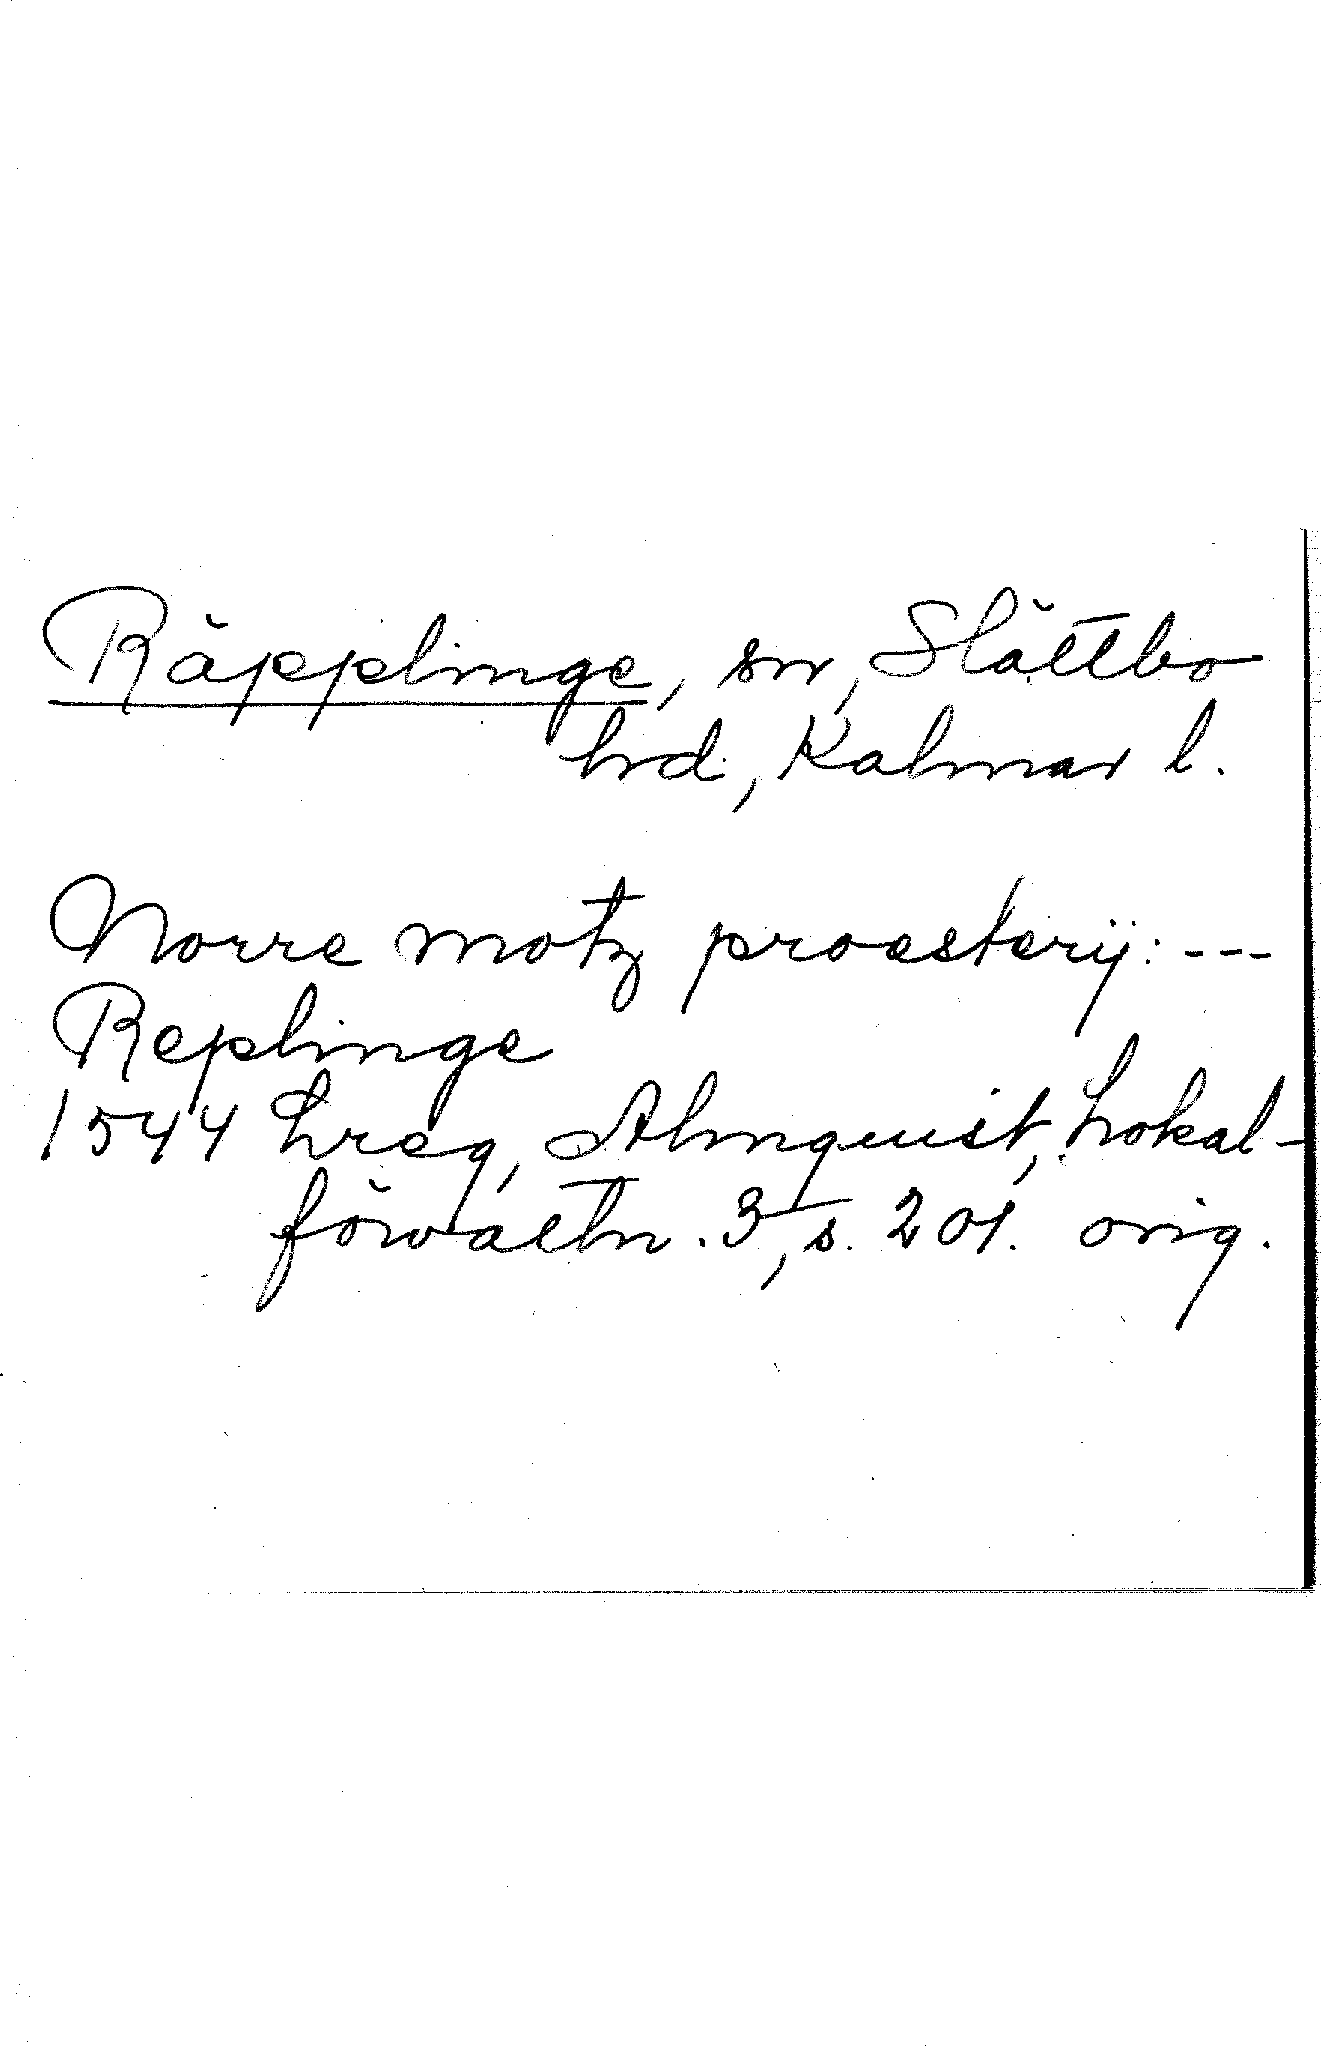 Räpplinge, sn, Slättbo
hrd, Kalmar l.
Norre motz proesterij: ---
Replinge
1544 Lreg, Almquist, Lokal-
förvaltn. 3, s. 201. orig.